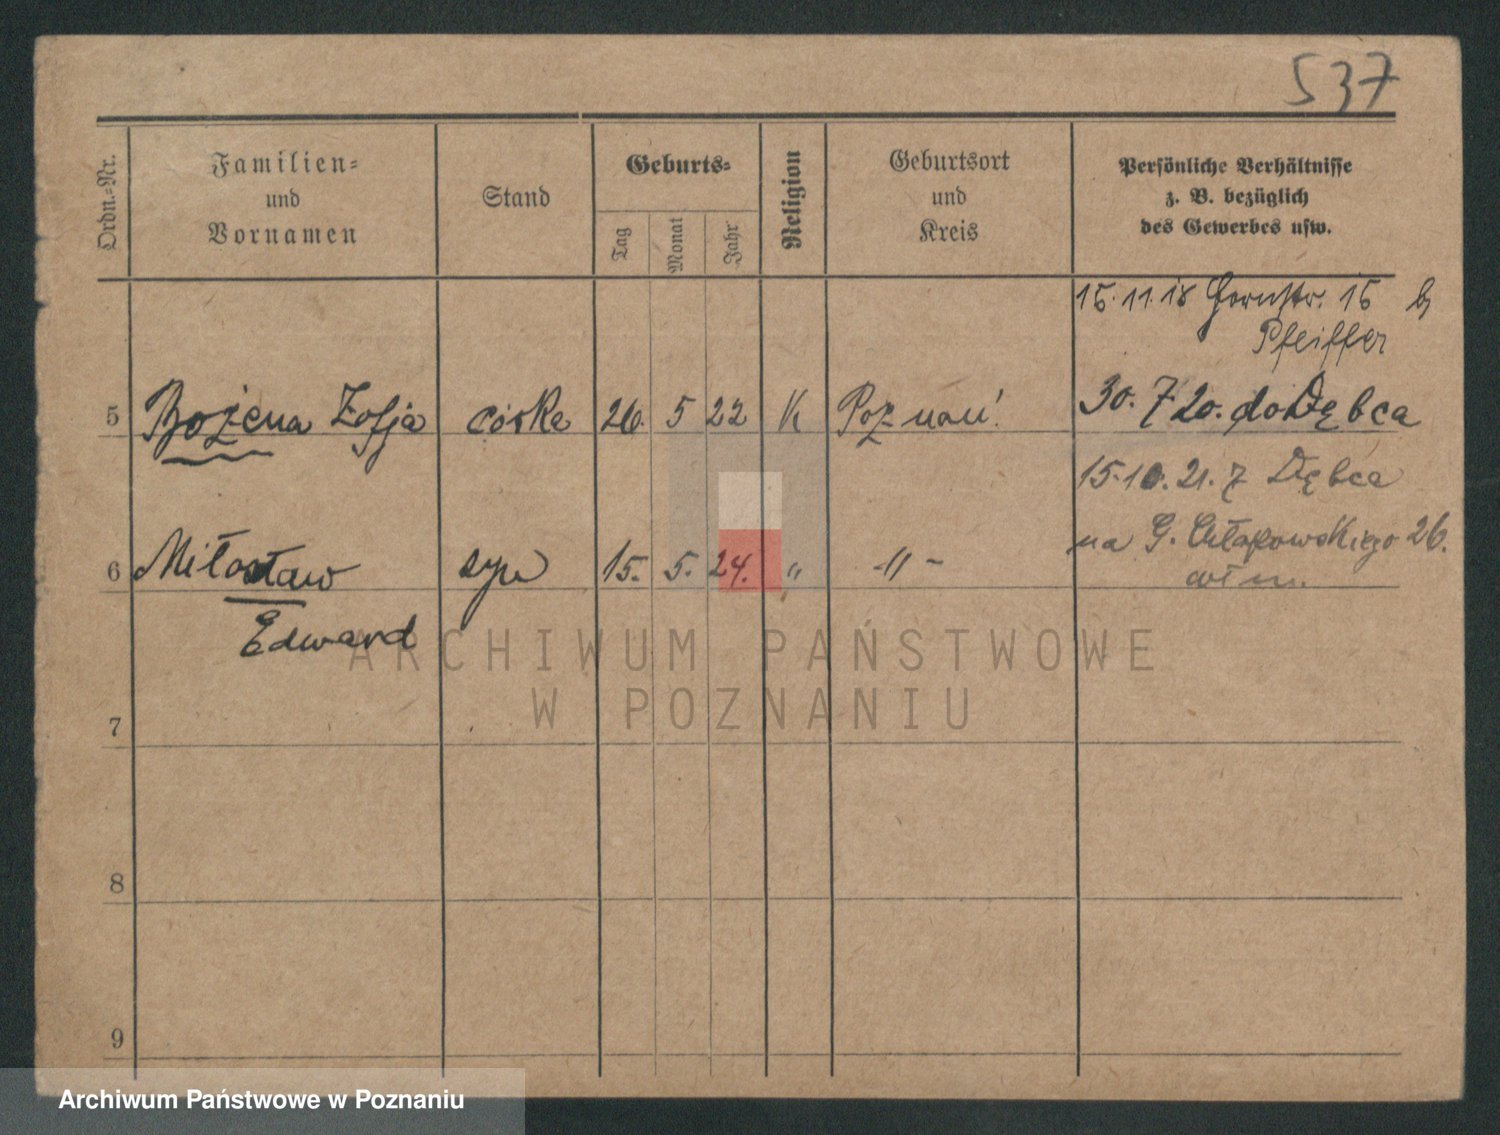 537
Ordn.=Nr.
Familien=
und
Vornamen
Stand
Geburts=
Tag
Monat
Jahr
Religion
Geburtsort
und
Kreis
Persönliche Verhältnisse
z. B. bezüglich
des Gewerbes usw.
15.11.18 15
Pfeiffer
5 Bożena Zofja córka 26. 5 22 K Poznań 30. 7 20. do Dębca
15.10.21. z Dębca
6 Miłosław syn 15. 5. 24. " -"- na G. Chłapowskiego 26.
Edward
ARCHIWUM PAŃSTWOWE
W POZNANIU
7
8
9
Archiwum Państwowe w Poznaniu